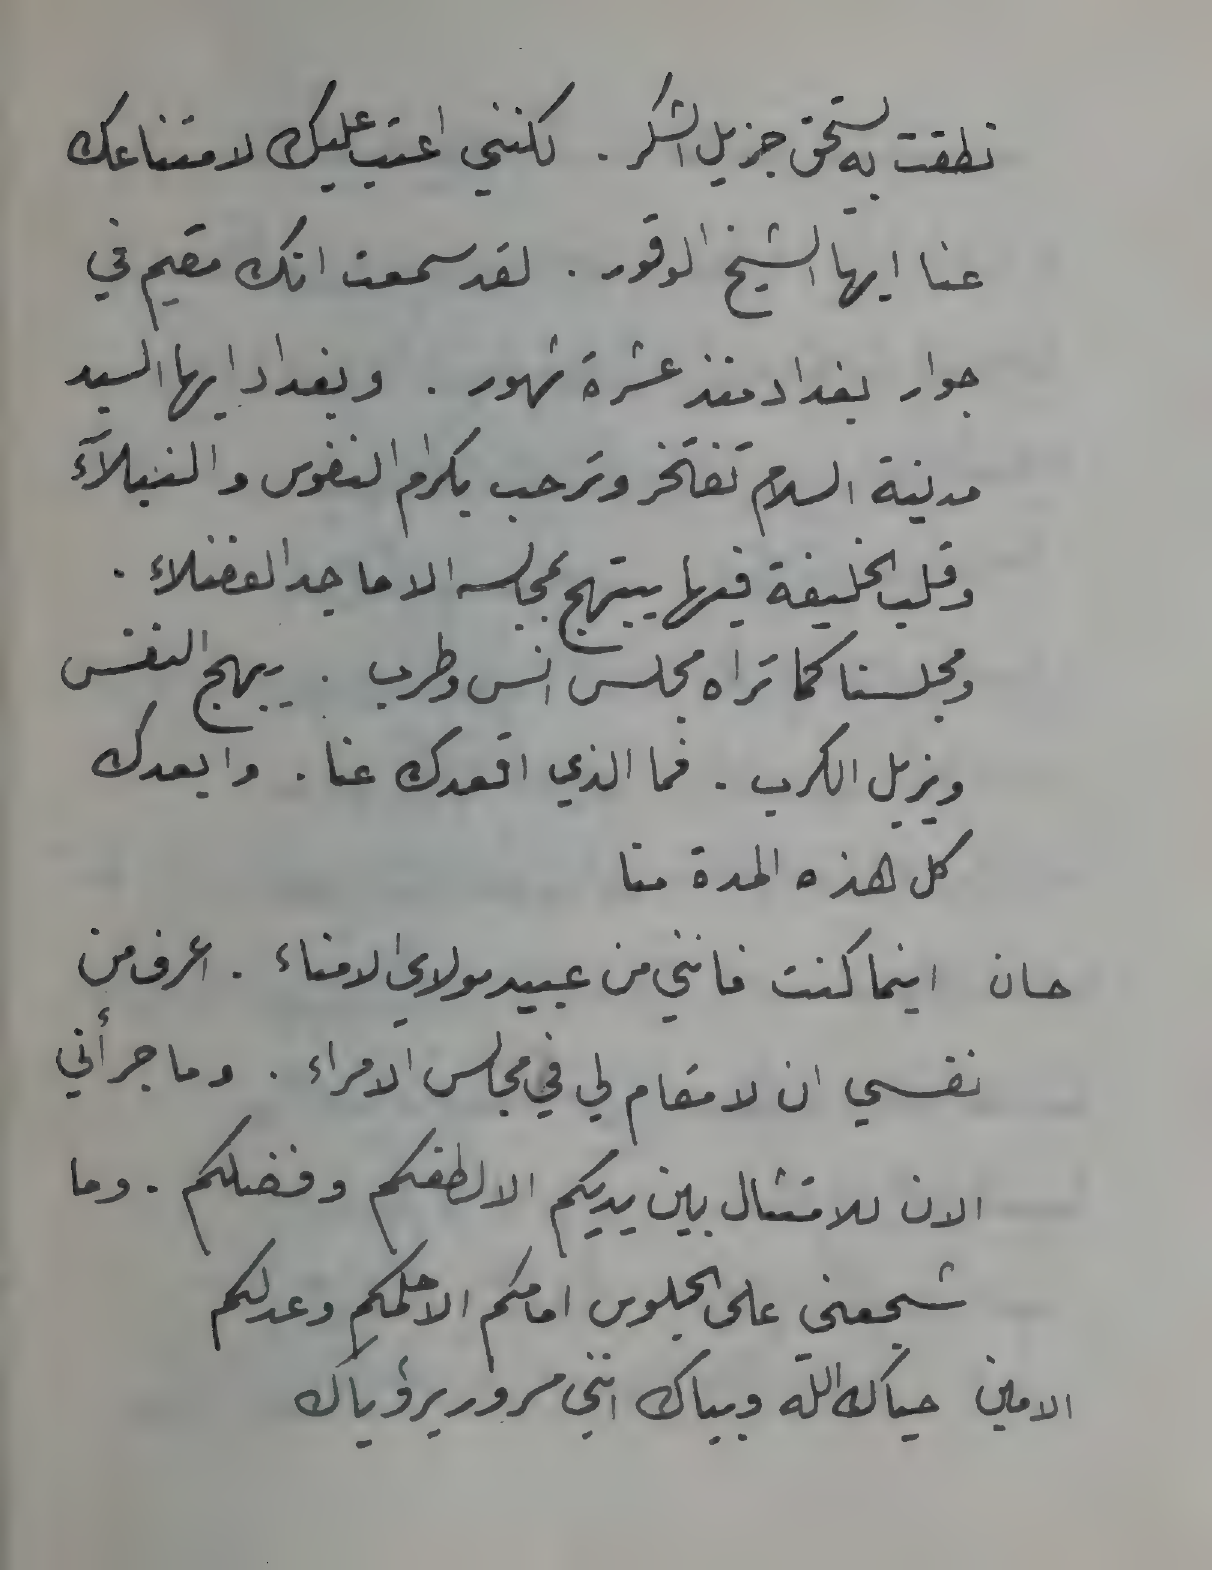 نطقت به يستحق جزيل الشكر . لكنني اعتب عليك لامتناعك
عنا ايها الشيخ الوقور . لقد سمعت انك مقيم في
جوار بغداد منذ عشرة شهور . وبغداد ايها السيد
مدينة السلام تفتخر وترحب بكرام النفوس والنبلآء
وقلب الخليفة فيها يبتهج بمجالسه الاماجد الفضلاء .
ومجلسنا كما تراه مجلس انس وطرب . يبهج النفس
ويزيل الكرب . فما الذي اقعدك عنا . وابعدك
كل هذه المدة منا
حان اينما كنت فانني من عبيد مولاي الامناء . اعرف من
نفسي ان لا مقام لي في مجالس الامراء . وما جرأني
الان للامتثال بين يديكم الا لطفكم وفضلكم . وما
شجعني على الجلوس امامكم الا حلمكم وعدلكم
الامين حياك الله وبياك انني مسرور برؤياك